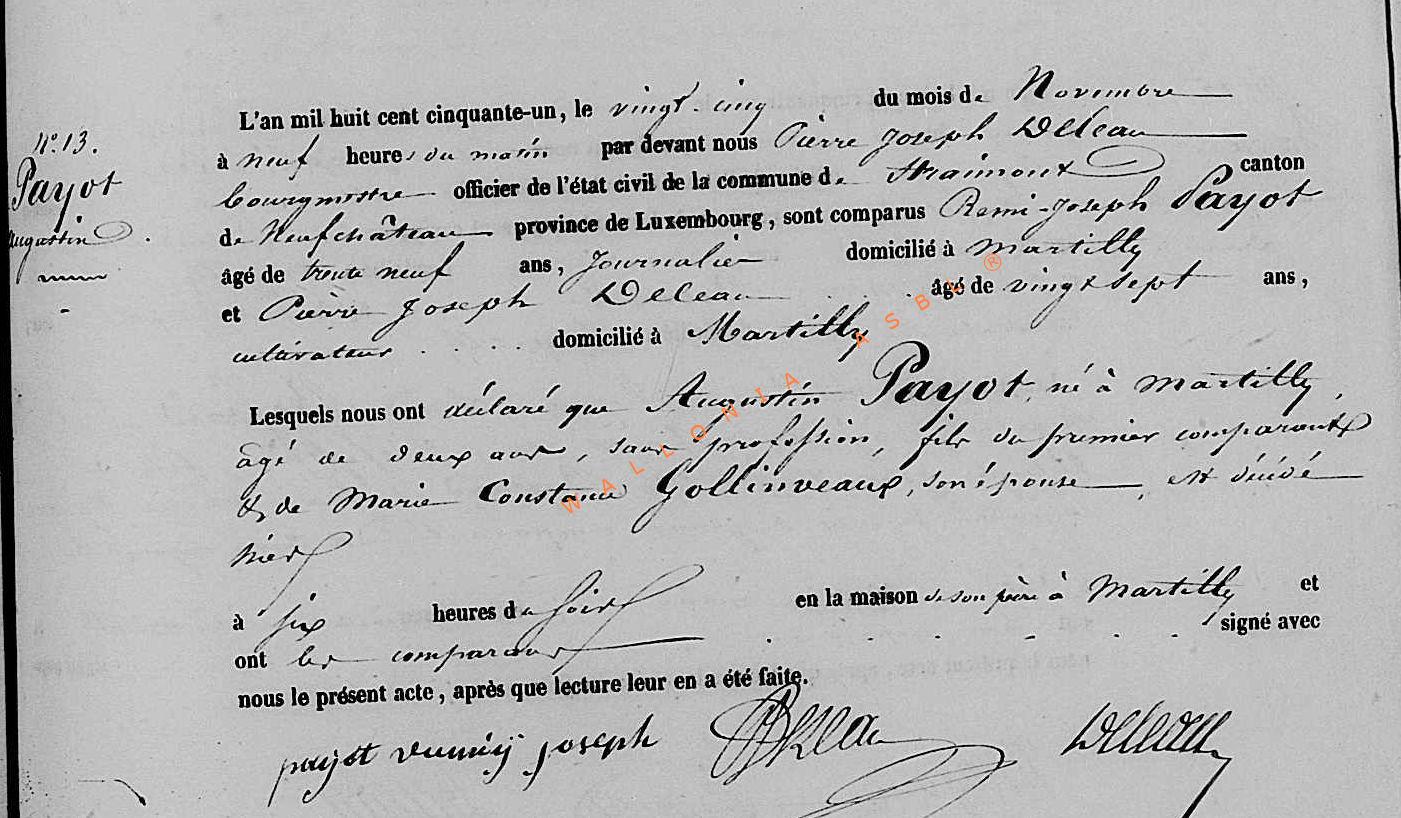 L'an mil huit cent cinquante-un, le vingt cinq du mois de Novembre
N.º 13.
à neuf heures du matin par devant nous Pierre Joseph Deleau
Payot
bourgmestre officier de l'état civil de la commune de Straimont canton
Augustin
de Neufchâteau province de Luxembourg, sont comparus Remi-Joseph Payot
âgé de trente neuf ans, Journalier domicilié à Martilly
et Pierre Joseph Deleau âgé de vingt sept ans,
cultivateur domicilié à Martilly
Lesquels nous ont déclaré que Augustin Payot, né à Martilly,
âgé de deux ans, sans profession, fils du premier comparant
& de Marie Constance Gollinveaux, son épouse, est décédé
hier
à six heures du soir en la maison de son père à Martilly et
ont les comparans signé avec
nous le présent acte, après que lecture leur en a été faite.
payot joseph Deleau
WALLONIA ASBL ®